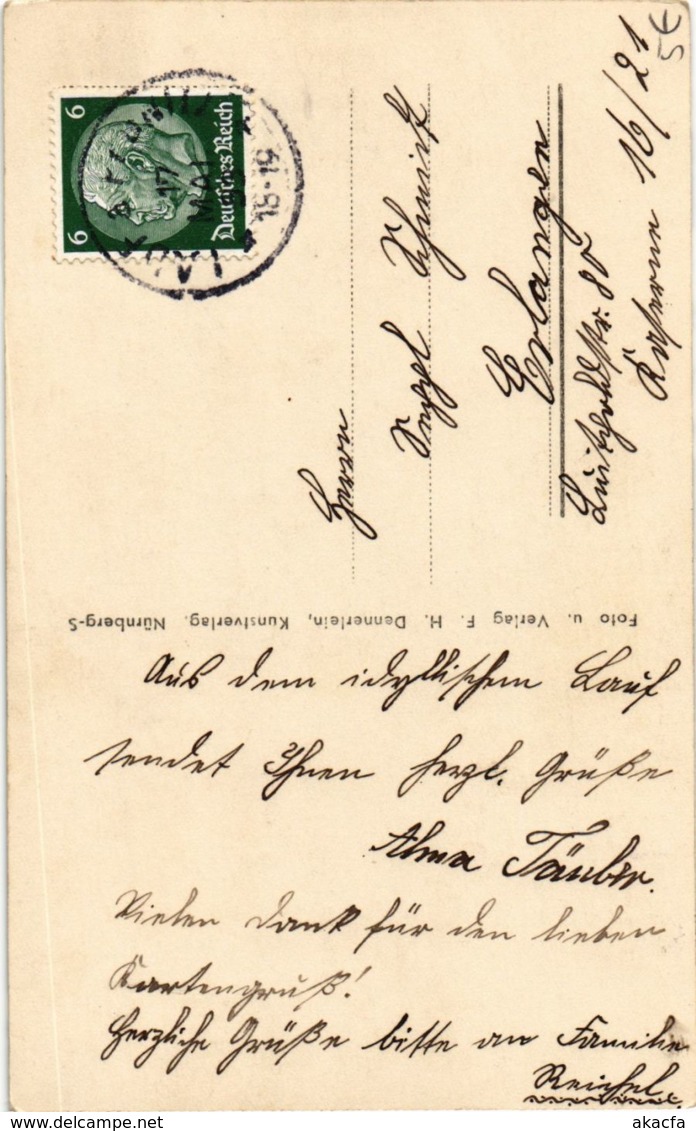 5€
Deutsches Reich
6
6
17
MAI
18-19
Herrn
Seppl Schmidt
Erlangen
Luitpoldstr. 80
Kaserne 16/21
Foto u. Verlag F. H. Dennerlein, Kunstverlag, Nürnberg-S
Aus dem idyllischem Lauf
sendet Ihnen herzl. Grüße
Alma Täuber.
Vielen Dank für den lieben
Kartengruß!
Herzliche Grüße bitte an Familie
Reichel
akacfa